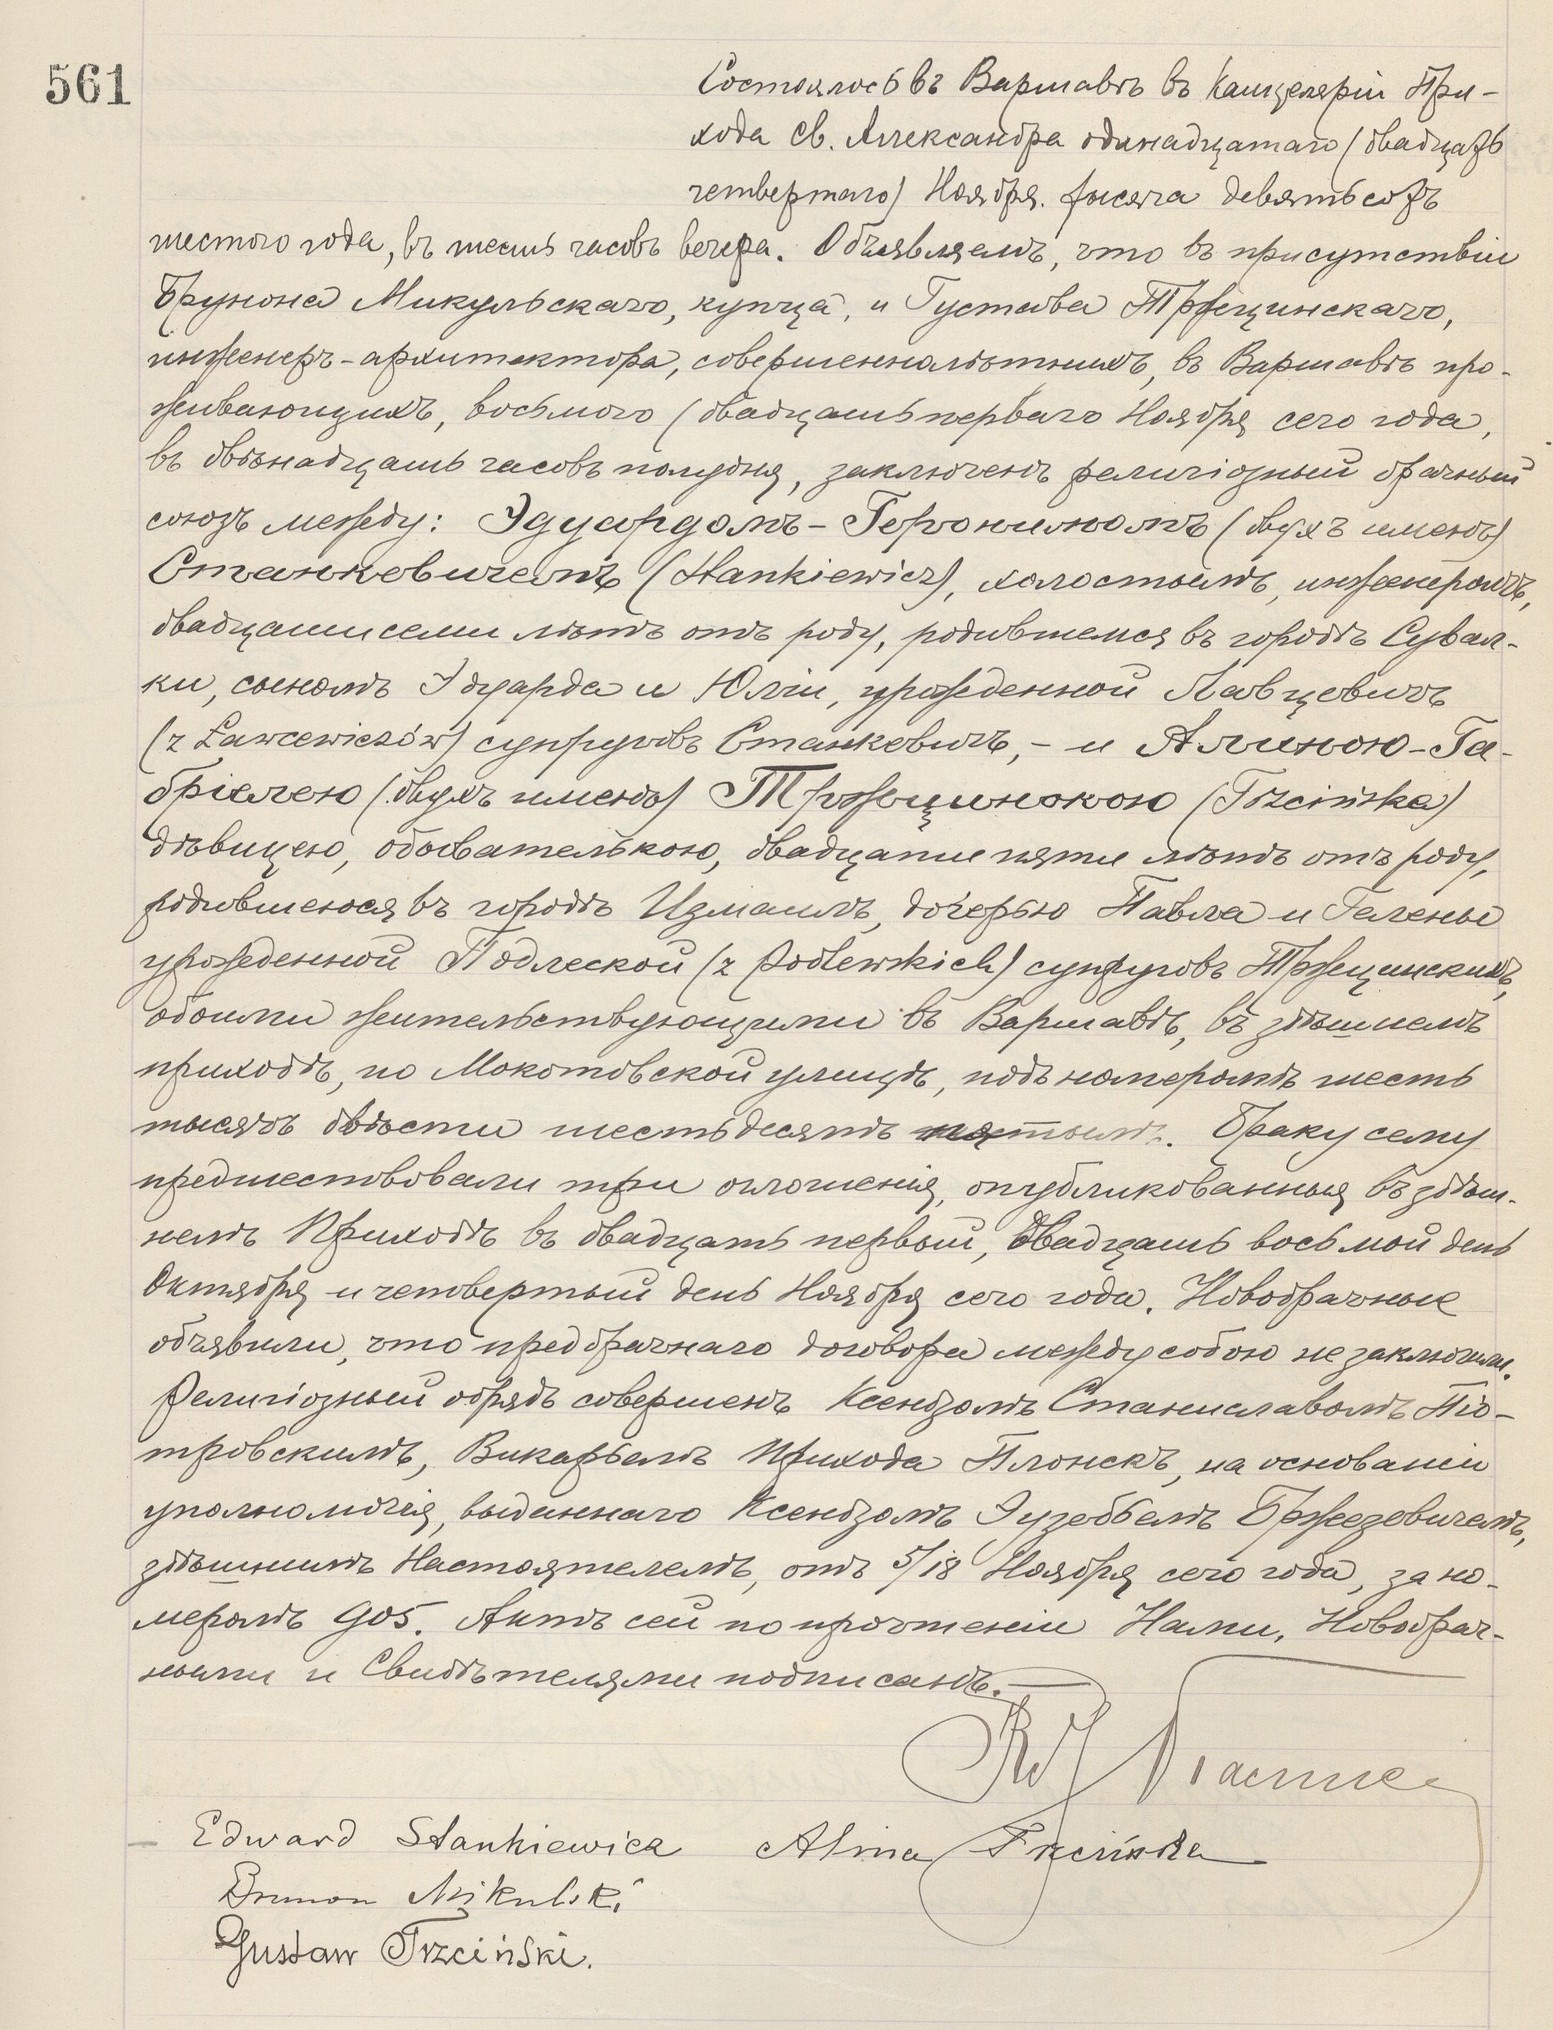 561
Состоялось въ Варшавѣ въ Канцеляріи При-
хода св. Александра одинадцатаго (двадцать
четвертаго) Ноября тысяча девятьсотъ
шестого года, въ шесть часовъ вечера. Объявляемъ, что въ присутствіи
Брунона Микульскаго, купца, и Густава Тржцинскаго,
инженеръ-архитектора, совершеннолѣтнихъ, въ Варшавѣ про-
живающихъ, восьмого (двадцать перваго Ноября сего года,
въ двѣнадцать часовъ полудня, заключенъ религіозный брачный
союзъ между: Эдуардомъ-Геронимомъ (двухъ именъ)
Станкевичемъ (Stankiewicz), холостымъ, инженеромъ,
двадцати семи лѣтъ отъ роду, родившемся въ городѣ Сувал-
ки, сыномъ Эдуарда и Юліи, урожденной Лавцевичъ
(z Ławcewiczów) супруговъ Станкевичъ, - и Алиною-Га-
бріелею (двухъ именъ) Тржцинскою (Trzcińska)
дѣвицею, обывателькою, двадцати пяти лѣтъ отъ роду,
родившеюся въ городѣ Измаилъ, дочерью Павла и Гелены
урожденной Подлеской (z Podlewskich) супруговъ Тржцинскихъ,
обоими жительствующими въ Варшавѣ, въ здѣшнемъ
приходѣ, по Мокотовской улицѣ, подъ номеромъ шесть
тысячъ двѣсти шестьдесятъ пятымъ. Браку сему
предшествовали три оглошенія, опубликованныя въ здѣш-
немъ Приходѣ въ двадцать первый, двадцать восьмой день
Октября и четвертый день Ноября сего года. Новобрачные
объявили, что предбрачнаго договора между собою не заключили.
Религіозный обрядъ совершенъ Ксендзомъ Станиславомъ Піо-
тровскимъ, Викарьемъ Прихода Плонскъ, на основаніи
уполномочія, выданнаго Ксендзомъ Эузебьемъ Бржезевичемъ,
здѣшнимъ Настоятелемъ, отъ 5/18 Ноября сего года, за но-
меромъ 905. Актъ сей по прочтеніи Нами, Новобрач-
ными и Свидѣтелями подписанъ.
Edward Stankiewicz Alina Trzcińska
Brunon Mikulski
Gustaw Trzciński.